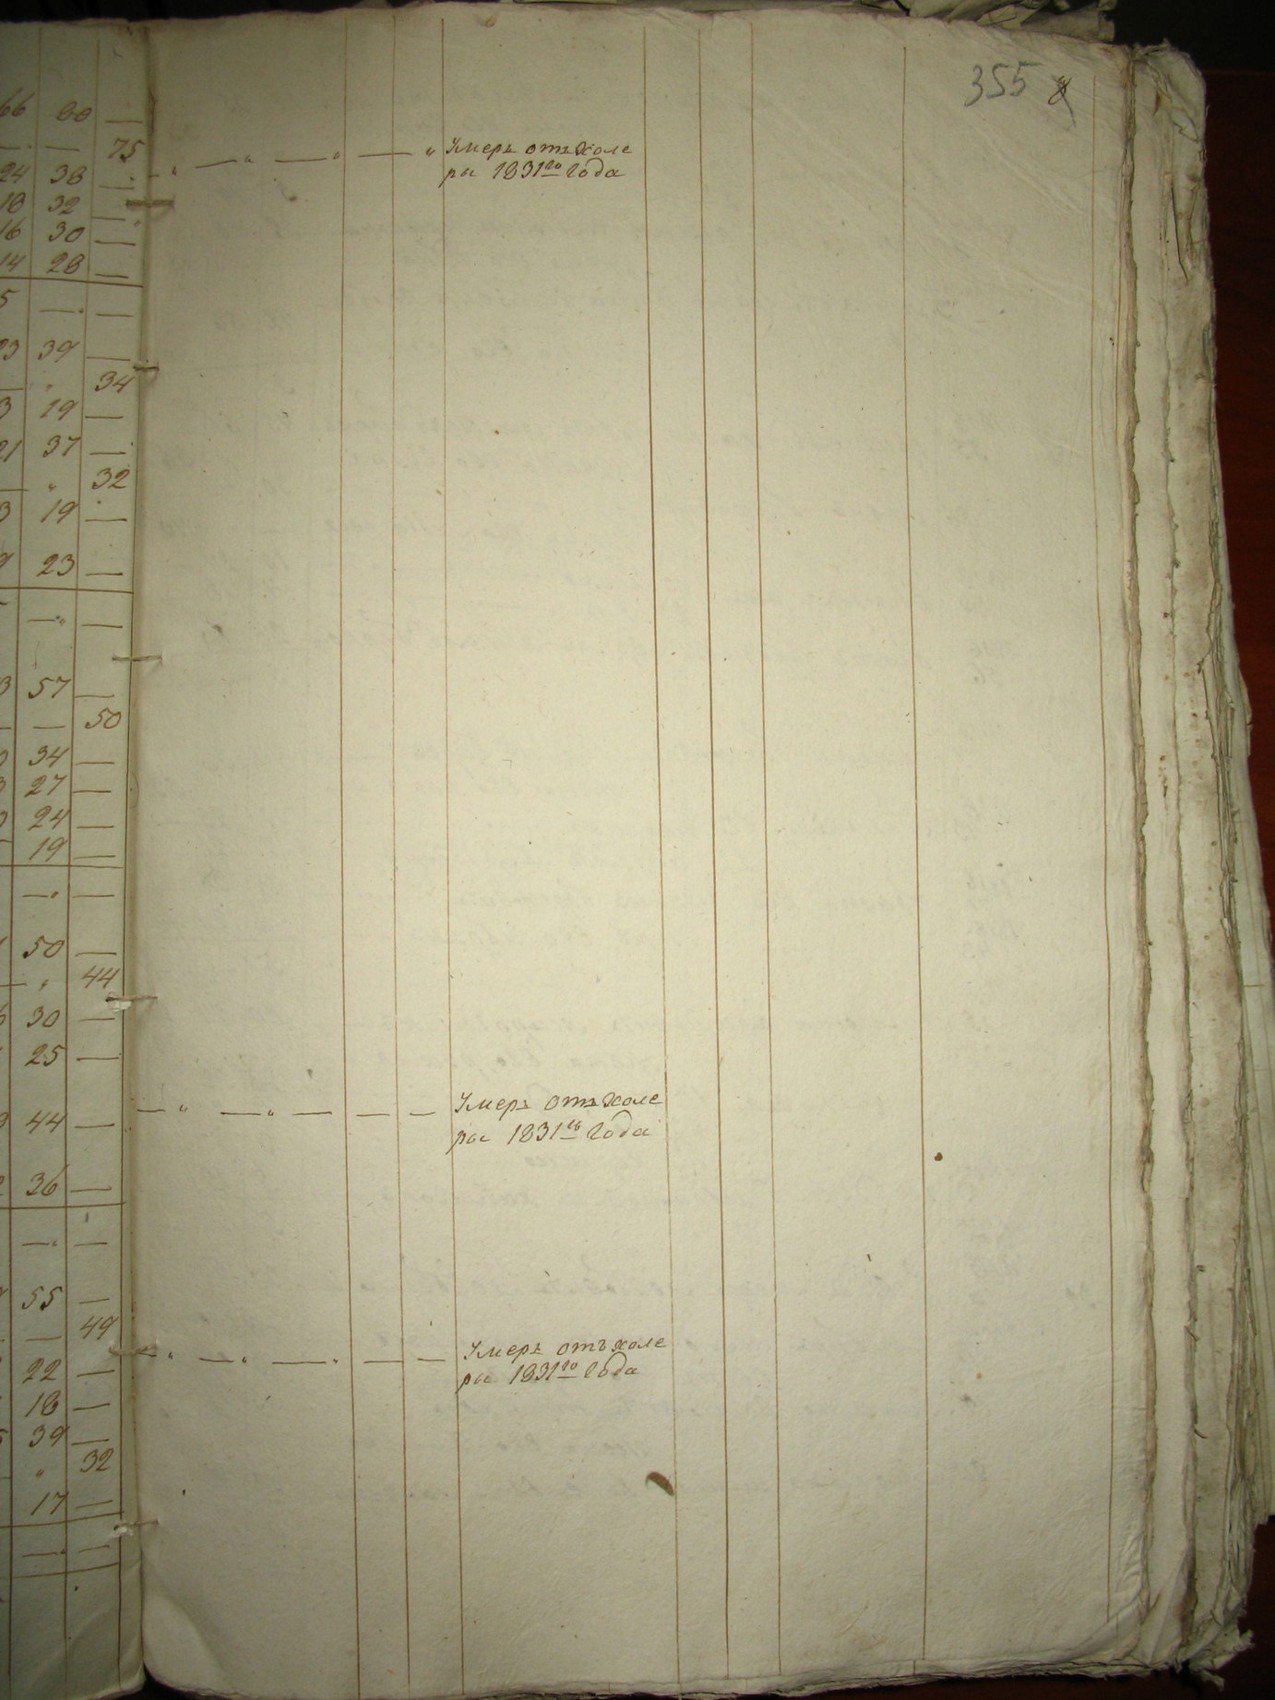 355
66 80 —
— . — 75
24 38 —
18 32 —
16 30 —
14 28 —
5 — . —
23 39 —
— „ 34
3 19 —
21 37 —
— „ 32
3 19 —
9 23 —
— „ —
3 57 —
— — 50
34 —
27 —
24 —
19 —
— . —
50 —
— „ 44
30 —
25 —
44 —
36 —
— . —
55 —
— 49
22 —
18 —
39 —
„ 32
17 —
— . —
„ — „ — „ — „ Умеръ отъ холе
ры 1831го года
— „ — „ — — — Умеръ отъ холе
ры 1831го года
— „ — „ — „ — — Умеръ отъ холе
ры 1831го года